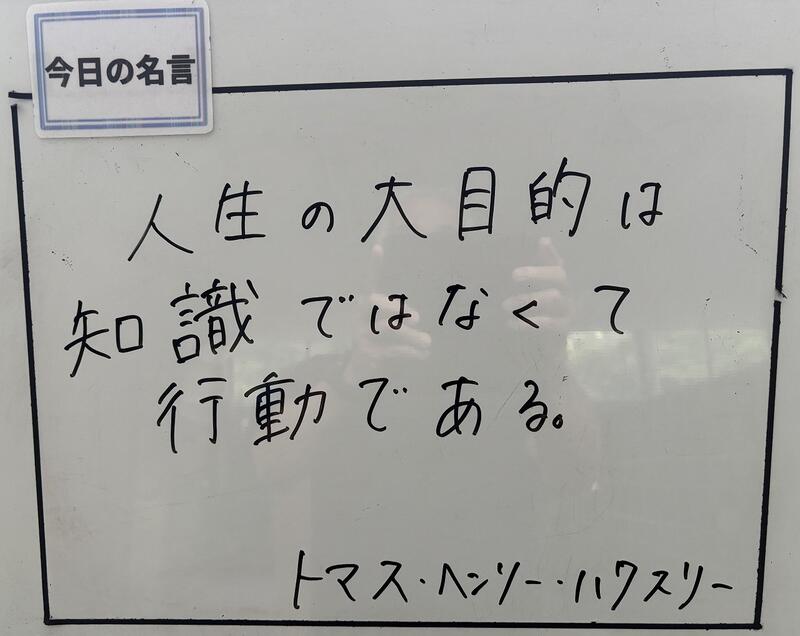 今日の名言
人生の大目的は
知識ではなくて
行動である。
トマス・ヘンリー・ハクスリー